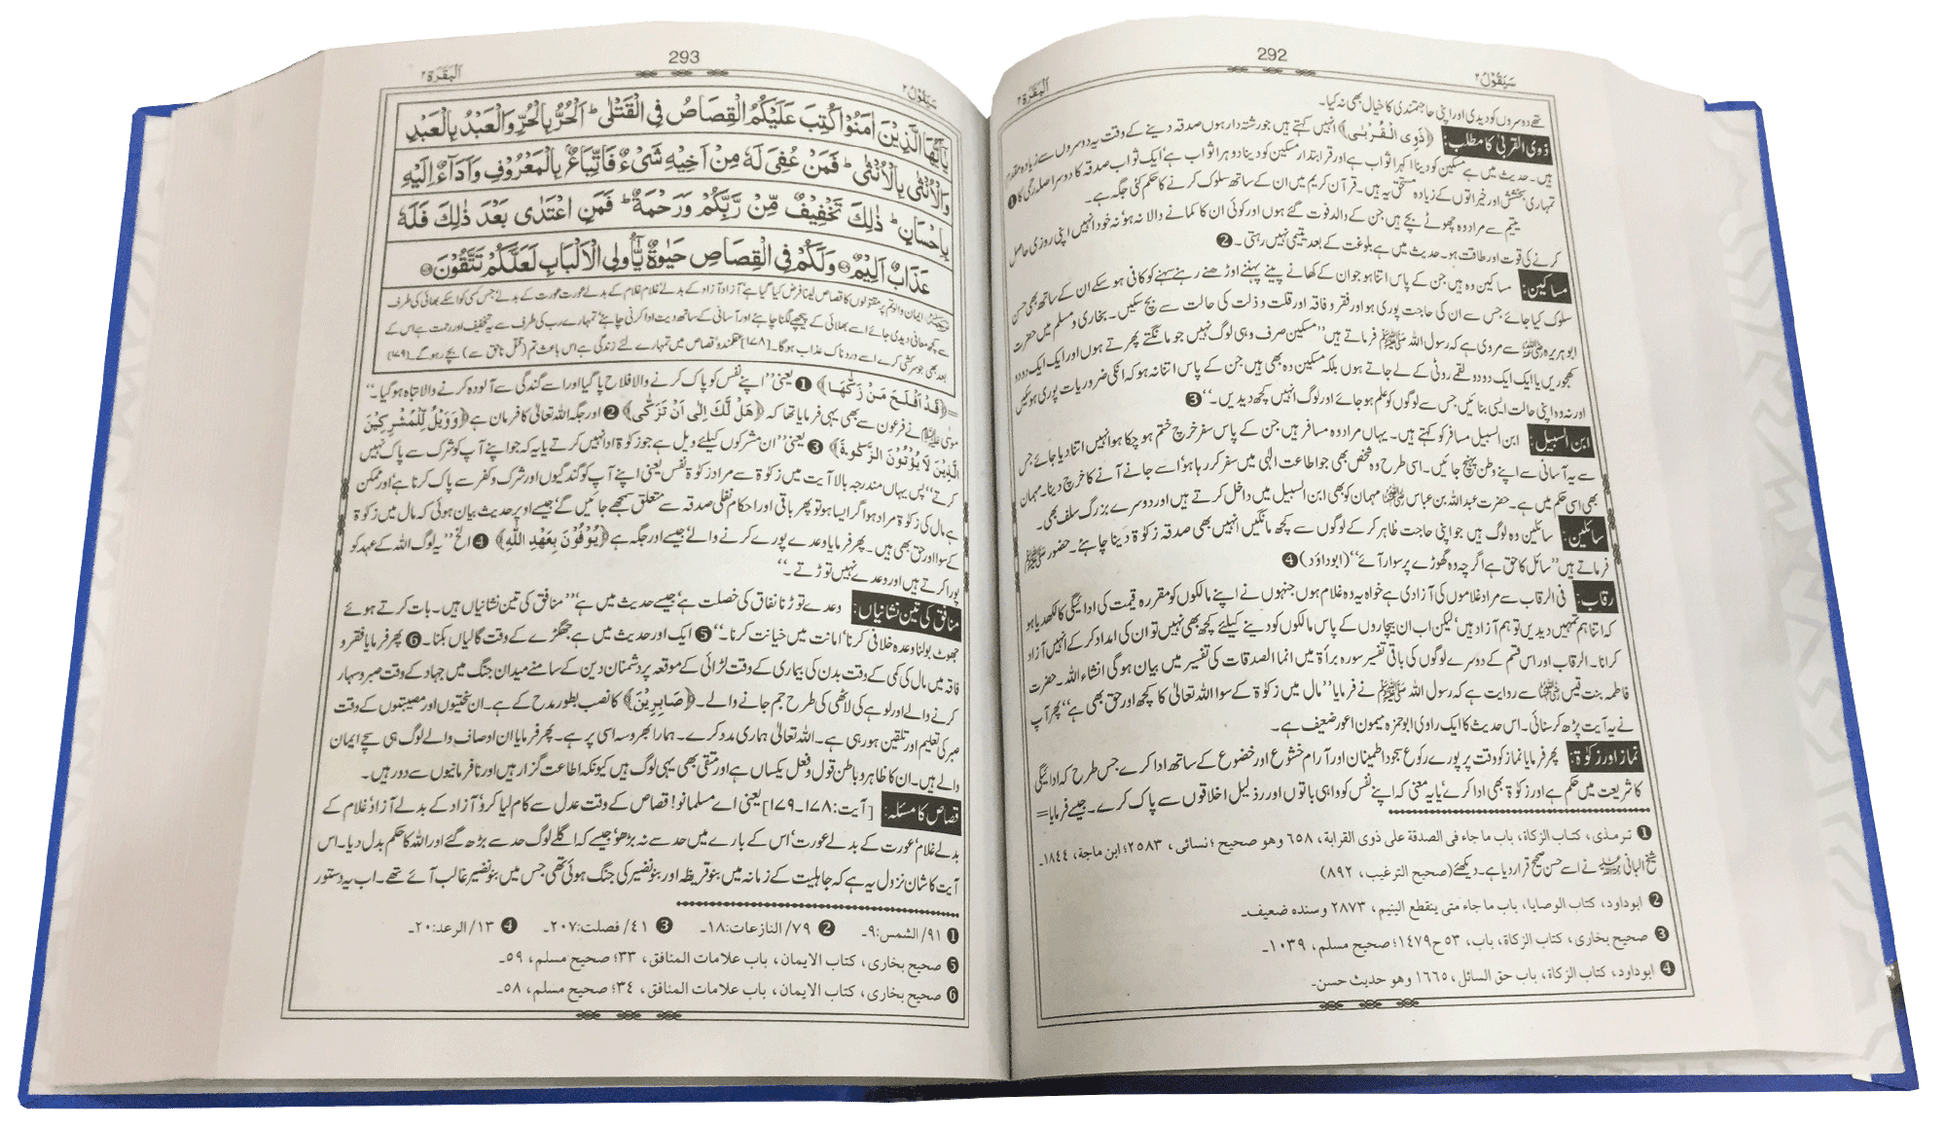 292
سَیَقُوْلُ ۲
اَلْبَقَرَة ۲
تھے دوسروں کو دیدی اور اپنی حاجتمندی کا خیال بھی نہ کیا۔
ذوی القربیٰ کا مطلب: ﴿ذَوِی الْقُرْبٰی﴾ انہیں کہتے ہیں جو رشتہ دار ہوں صدقہ دینے کے وقت یہ دوسروں سے زیادہ مقدم
ہیں۔ حدیث میں ہے مسکین کو دینا اکہرا ثواب ہے اور قرابتدار مسکین کو دینا دوہرا ثواب ہے' ایک ثواب صدقہ کا دوسرا صلہ رحمی کا ❶
تمہاری بخشش اور خیراتوں کے زیادہ مستحق یہ ہیں۔ قرآن کریم میں ان کے ساتھ سلوک کرنے کا حکم کئی جگہ ہے۔
یتیم سے مراد وہ چھوٹے بچے ہیں جن کے والد فوت گئے ہوں اور کوئی ان کا کمانے والا نہ ہو' نہ خود انہیں اپنی روزی حاصل
کرنے کی قوت اور طاقت ہو۔ حدیث میں ہے بلوغت کے بعد یتیمی نہیں رہتی۔ ❷
مساکین: مساکین وہ ہیں جن کے پاس اتنا ہو جو ان کے کھانے پینے پہننے اوڑھنے رہنے سہنے کو کافی ہو سکے ان کے ساتھ بھی حسن
سلوک کیا جائے جس سے ان کی حاجت پوری ہو اور فقر و فاقہ اور قلت و ذلت کی حالت سے بچ سکیں۔ بخاری و مسلم میں حضرت
ابوہریرہ رضی اللہ عنہ سے مروی ہے کہ رسول اللہ ﷺ فرماتے ہیں ''مسکین صرف وہی لوگ نہیں جو مانگتے پھرتے ہوں اور ایک ایک دو دو
کھجوریں یا ایک ایک دو دو لقمے روٹی کے لے جاتے ہوں بلکہ مسکین وہ بھی ہیں جن کے پاس اتنا نہ ہو کہ انکی ضروریات پوری ہو سکیں
اور نہ وہ اپنی حالت ایسی بنائیں جس سے لوگوں کو علم ہو جائے اور لوگ انہیں کچھ دیدیں۔'' ❸
ابن السبیل: ابن السبیل مسافر کو کہتے ہیں۔ یہاں مراد وہ مسافر ہیں جن کے پاس سفر خرچ ختم ہو چکا ہو انہیں اتنا دیا جائے جس
سے یہ آسانی سے اپنے وطن پہنچ جائیں۔ اسی طرح وہ شخص بھی جو اطاعت الٰہی میں سفر کر رہا ہو' اسے جانے آنے کا خرچ دینا۔ مہمان
بھی اسی حکم میں ہے۔ حضرت عبداللہ بن عباس رضی اللہ عنہما مہمان کو بھی ابن السبیل میں داخل کرتے ہیں اور دوسرے بزرگ سلف بھی۔
سائلین: سائلین وہ لوگ ہیں جو اپنی حاجت ظاہر کر کے لوگوں سے کچھ مانگیں انہیں بھی صدقہ زکوٰة دینا چاہئے۔ حضور ﷺ
فرماتے ہیں ''سائل کا حق ہے اگرچہ وہ گھوڑے پر سوار آئے'' (ابوداؤد) ❹
رقاب: فی الرقاب سے مراد غلاموں کی آزادی ہے خواہ یہ وہ غلام ہوں جنہوں نے اپنے مالکوں کو مقررہ قیمت کی ادائیگی کا لکھ دیا ہو
کہ اتنا ہم تمہیں دیدیں تو ہم آزاد ہیں' لیکن اب ان بیچاروں کے پاس مالکوں کو دینے کیلئے کچھ بھی نہیں تو ان کی امداد کر کے انہیں آزاد
کرانا۔ الرقاب اور اس قسم کے دوسرے لوگوں کی باقی تفسیر سورہ برأة میں انما الصدقات کی تفسیر میں بیان ہوگی انشاء اللہ۔ حضرت
فاطمہ بنت قیس رضی اللہ عنہا سے روایت ہے کہ رسول اللہ ﷺ نے فرمایا ''مال میں زکوٰة کے سوا اللہ تعالیٰ کا کچھ اور حق بھی ہے'' پھر آپ
نے یہ آیت پڑھ کر سنائی۔ اس حدیث کا ایک راوی ابوحمزہ میمون اعور ضعیف ہے۔
نماز اور زکوٰة: پھر فرمایا نماز کو وقت پر پورے رکوع سجود اطمینان اور آرام خشوع اور خضوع کے ساتھ ادا کرے جس طرح کہ ادائیگی
کا شریعت میں حکم ہے اور زکوٰة بھی ادا کرے' یا یہ معنی کہ اپنے نفس کو واہی باتوں اور رذیل اخلاقوں سے پاک کرے۔ جیسے فرمایا=
❶ ترمذی، کتاب الزکاة، باب ما جاء فی الصدقة علی ذوی القرابة، ٦٥٨ وهو صحیح؛ نسائی، ٢٥٨٣؛ ابن ماجة، ١٨٤٤۔
شیخ البانی رحمہ اللہ نے اسے حسن صحیح قرار دیا ہے۔ دیکھئے (صحیح الترغیب، ٨٩٢)
❷ ابوداود، کتاب الوصایا، باب ما جاء متی ینقطع الیتیم، ٢٨٧٣ وسنده ضعیف۔
❸ صحیح بخاری، کتاب الزکاة، باب، ٥٣ ح١٤٧٩؛ صحیح مسلم، ١٠٣٩۔
❹ ابوداود، کتاب الزکاة، باب حق السائل، ١٦٦٥ وهو حدیث حسن۔
293
سَیَقُوْلُ ۲
اَلْبَقَرَة ۲
یٰۤاَیُّهَا الَّذِیْنَ اٰمَنُوْا كُتِبَ عَلَیْكُمُ الْقِصَاصُ فِی الْقَتْلٰیؕ اَلْحُرُّ بِالْحُرِّ وَ الْعَبْدُ بِالْعَبْدِ
وَ الْاُنْثٰی بِالْاُنْثٰیؕ فَمَنْ عُفِیَ لَهٗ مِنْ اَخِیْهِ شَیْءٌ فَاتِّبَاعٌۢ بِالْمَعْرُوْفِ وَ اَدَآءٌ اِلَیْهِ
بِاِحْسَانٍؕ ذٰلِكَ تَخْفِیْفٌ مِّنْ رَّبِّكُمْ وَ رَحْمَةٌؕ فَمَنِ اعْتَدٰی بَعْدَ ذٰلِكَ فَلَهٗ
عَذَابٌ اَلِیْمٌ۝ وَ لَكُمْ فِی الْقِصَاصِ حَیٰوةٌ یّٰۤاُولِی الْاَلْبَابِ لَعَلَّكُمْ تَتَّقُوْنَ۝
ایمان والو تم پر مقتولوں کا قصاص لینا فرض کیا گیا ہے' آزاد آزاد کے بدلے' غلام غلام کے بدلے عورت عورت کے بدلے' جس کسی کو اسکے بھائی کی طرف
سے کچھ معافی دیدی جائے اسے بھلائی کے پیچھے لگنا چاہئے اور آسانی کے ساتھ دیت ادا کرنی چاہئے' تمہارے رب کی طرف سے یہ تخفیف اور رحمت ہے اس کے
بعد بھی جو سرکشی کرے اسے دردناک عذاب ہوگا۔[۱۷۸] عقلمندو' قصاص میں تمہارے لئے زندگی ہے اس باعث تم (قتل ناحق سے) بچے رہو گے۔[۱۷۹]
=﴿قَدْ اَفْلَحَ مَنْ زَكّٰهَا﴾ ❶ یعنی ''اپنے نفس کو پاک کرنے والا فلاح پا گیا اور اسے گندگی سے آلودہ کرنے والا تباہ ہو گیا۔''
موسٰی علیہ السلام نے فرعون سے بھی یہی فرمایا تھا کہ ﴿هَلْ لَّكَ اِلٰی اَنْ تَزَكّٰی﴾ ❷ اور جگہ اللہ تعالیٰ کا فرمان ہے ﴿وَوَیْلٌ لِّلْمُشْرِكِیْنَ
الَّذِیْنَ لَا یُؤْتُوْنَ الزَّكٰوةَ﴾ ❸ یعنی ''ان مشرکوں کیلئے ویل ہے جو زکوٰة ادا نہیں کرتے یا یہ کہ جو اپنے آپ کو شرک سے پاک نہیں
کرتے'' پس یہاں مندرجہ بالا آیت میں زکوٰة سے مراد زکوٰة نفس یعنی اپنے آپ کو گندگیوں اور شرک و کفر سے پاک کرنا ہے اور ممکن
ہے مال کی زکوٰة مراد ہو' اگر ایسا ہو تو پھر باقی اور احکام نفلی صدقہ سے متعلق سمجھے جائیں گے' جیسے اوپر حدیث بیان ہوئی کہ مال میں زکوٰة
کے سوا اور حق بھی ہیں۔ پھر فرمایا وعدے پورے کرنے والے' جیسے اور جگہ ہے ﴿یُوْفُوْنَ بِعَهْدِ اللّٰهِ﴾ ❹ الخ ''یہ لوگ اللہ کے عہد کو
پورا کرتے ہیں اور وعدے نہیں توڑتے۔''
منافق کی تین نشانیاں: وعدے توڑنا نفاق کی خصلت ہے' جیسے حدیث میں ہے ''منافق کی تین نشانیاں ہیں۔ بات کرتے ہوئے
جھوٹ بولنا' وعدہ خلافی کرنا' امانت میں خیانت کرنا۔'' ❺ ایک اور حدیث میں ہے جھگڑے کے وقت گالیاں بکنا۔ ❻ پھر فرمایا فقر و
فاقہ میں مال کی کمی کے وقت بدن کی بیماری کے وقت لڑائی کے موقعہ پر دشمنان دین کے سامنے میدان جنگ میں جہاد کے وقت صبر و سہار
کرنے والے اور لوہے کی لاٹھی کی طرح جم جانے والے۔ ﴿صَابِرِیْنَ﴾ کا نصب بطور مدح کے ہے۔ ان سختیوں اور مصیبتوں کے وقت
صبر کی تعلیم اور تلقین ہو رہی ہے۔ اللہ تعالیٰ ہماری مدد کرے۔ ہمارا بھروسہ اسی پر ہے۔ پھر فرمایا ان اوصاف والے لوگ ہی سچے ایمان
والے ہیں۔ ان کا ظاہر و باطن قول و فعل یکساں ہے اور متقی بھی یہی لوگ ہیں کیونکہ اطاعت گزار ہیں اور نافرمانیوں سے دور ہیں۔
قصاص کا مسئلہ: [آیت:۱۷۸۔۱۷۹] یعنی اے مسلمانو! قصاص کے وقت عدل سے کام لیا کرو' آزاد کے بدلے آزاد' غلام کے
بدلے غلام' عورت کے بدلے عورت' اس کے بارے میں حد سے نہ بڑھو' جیسے کہ اگلے لوگ حد سے بڑھ گئے اور اللہ کا حکم بدل دیا۔ اس
آیت کا شان نزول یہ ہے کہ جاہلیت کے زمانہ میں بنو قریظہ اور بنو نضیر کی جنگ ہوئی تھی جس میں بنو نضیر غالب آئے تھے۔ اب یہ دستور
❶ ٩١/ الشمس:٩۔ ❷ ٧٩/ النازعات:١٨۔ ❸ ٤١/ فصلت:٢٠٧۔ ❹ ١٣/ الرعد:٢٠۔
❺ صحیح بخاری، کتاب الایمان، باب علامات المنافق، ٣٣؛ صحیح مسلم، ٥٩۔
❻ صحیح بخاری، کتاب الایمان، باب علامات المنافق، ٣٤؛ صحیح مسلم، ٥٨۔